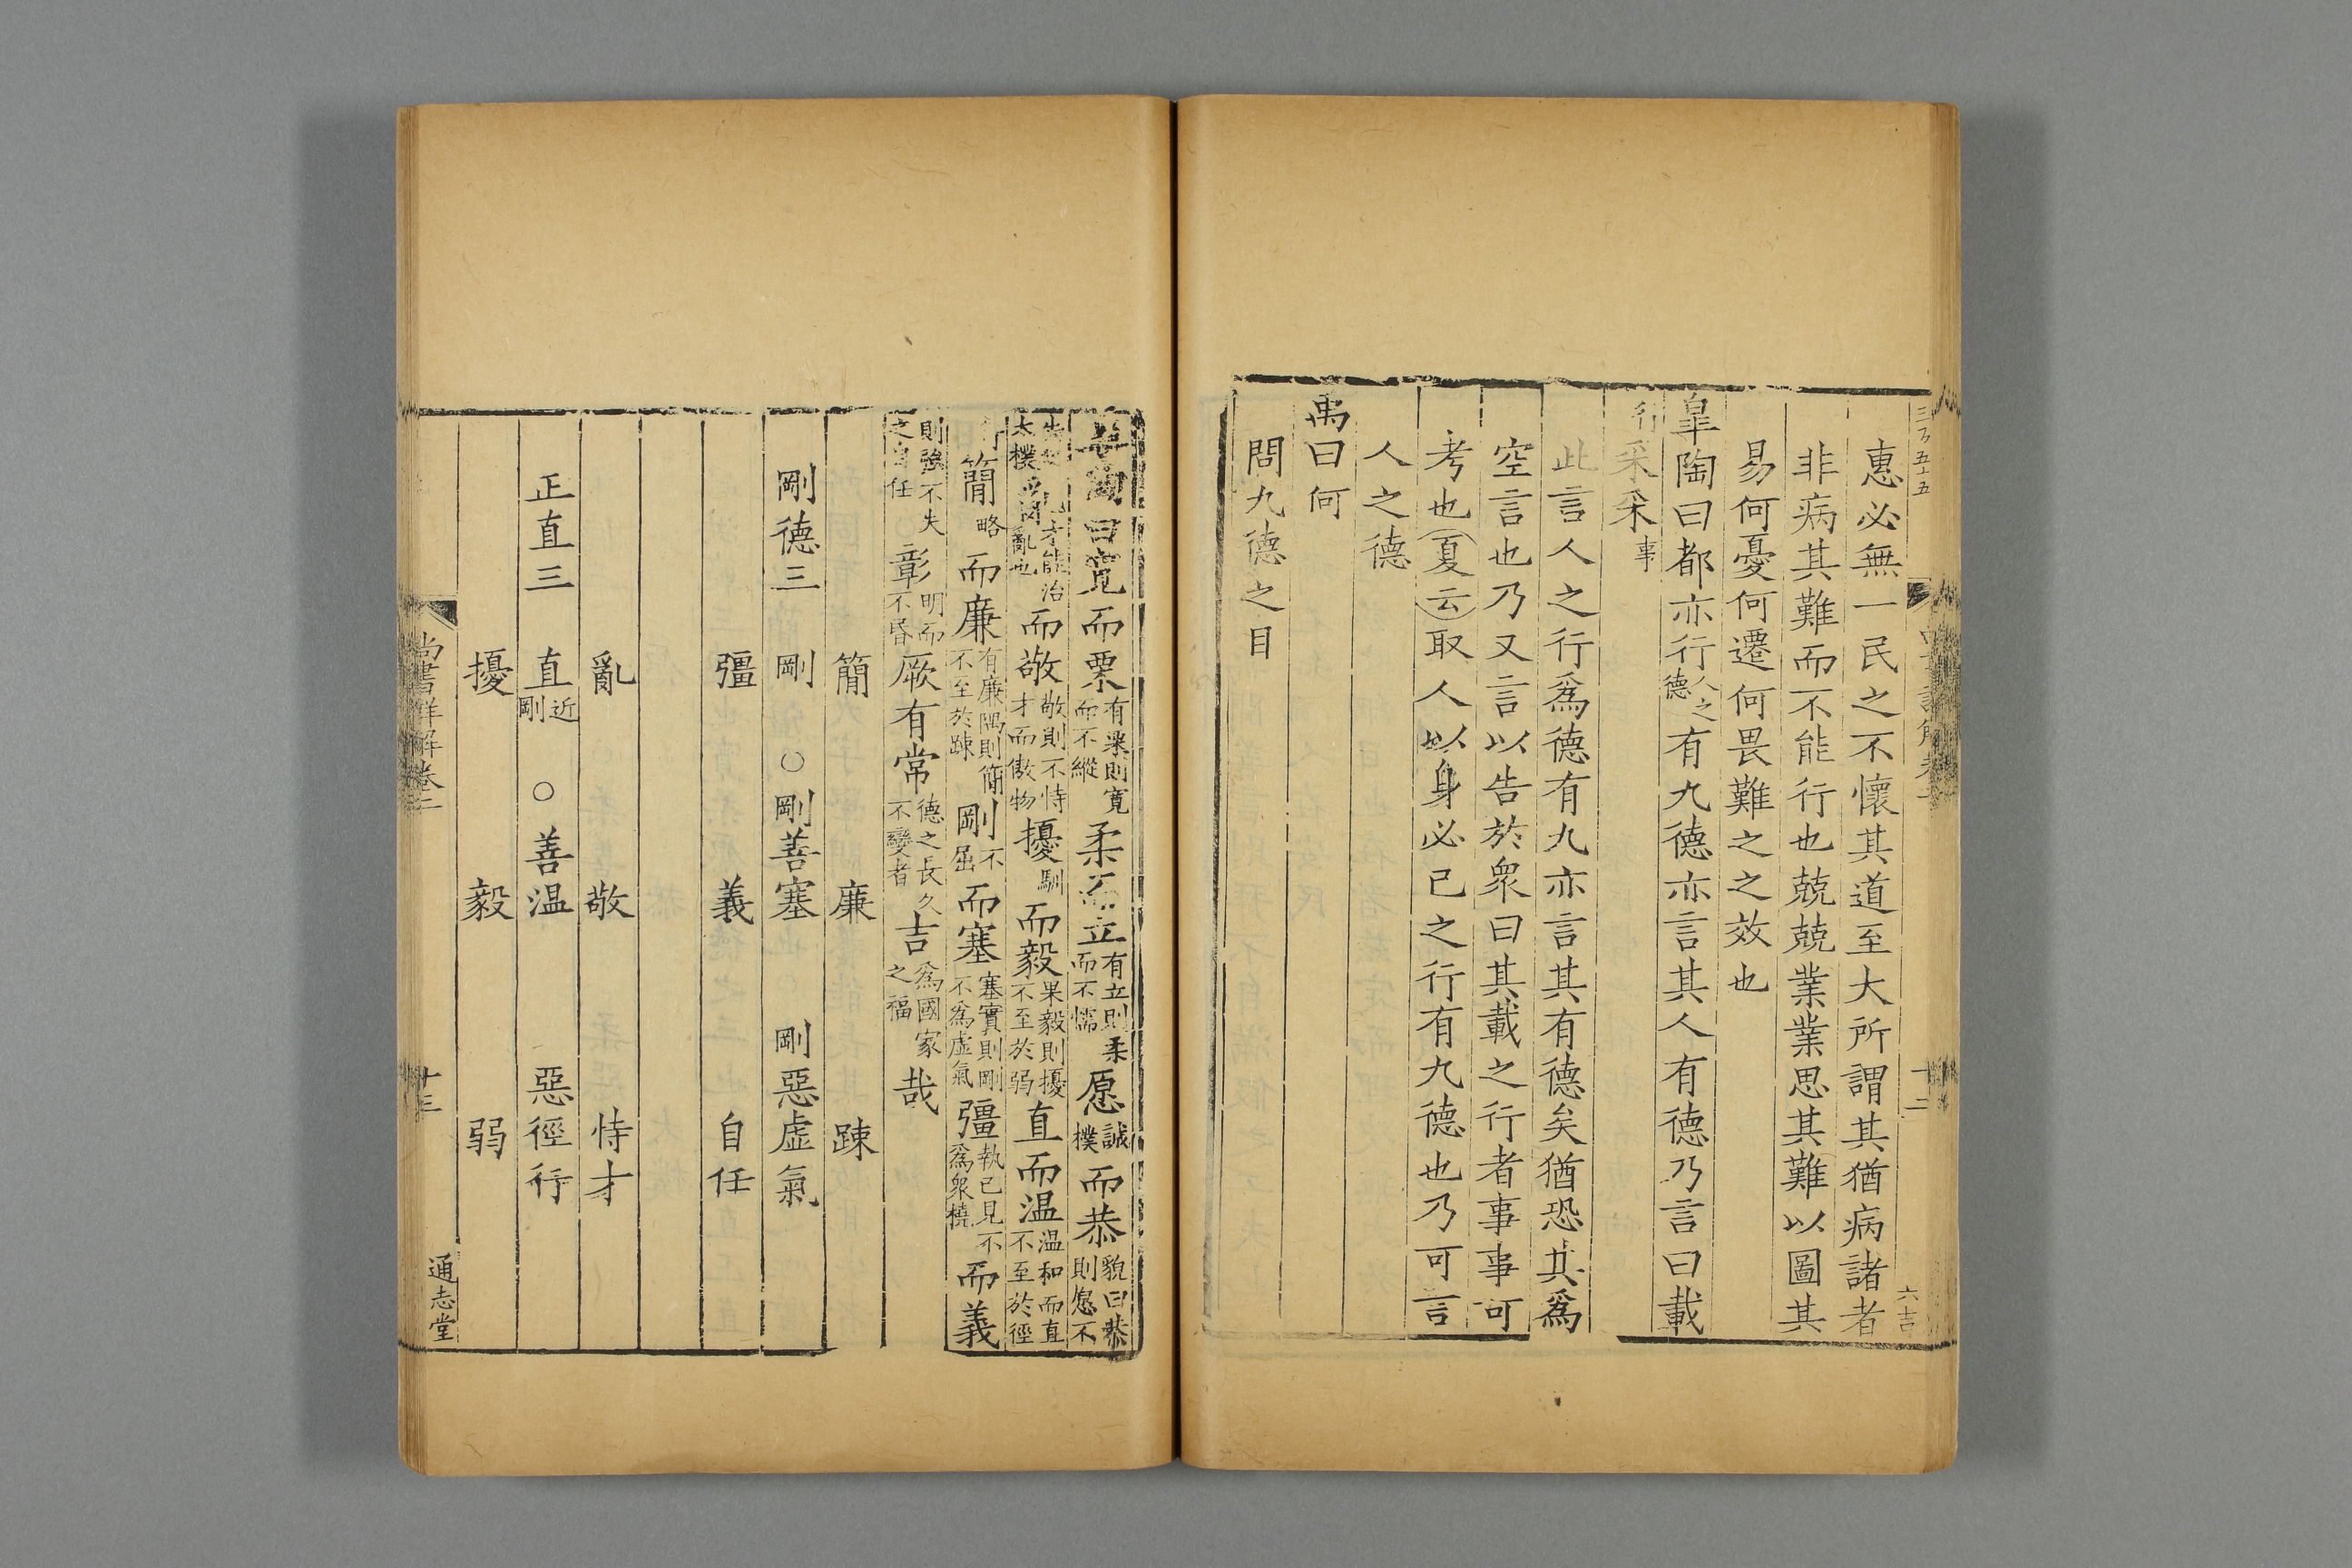 惠必無一民之不懷其道至大所謂其猶病諸者
非病其難而不能行也兢兢業業思其難以圖其
易何憂何遷何畏難之之效也
皐陶曰都亦行人之德有九德亦言其人有德乃言曰載
行采采事
此言人之行爲德有九亦言其有德矣猶恐其爲
空言也乃又言以告於衆曰其載之行者事事可
考也夏云取人以身必已之行有九德也乃可言
人之德
禹曰何
問九德之目
曰寛而栗有栗則寛而不縱柔而立有立則柔而不懦愿誠樸而恭貌曰恭則愿不
太樸亂才能治亂也而敬敬則不恃才而傲物擾馴而毅果毅則擾不至於弱直而温温和而直不至於徑
簡略而廉有廉隅則簡不至於踈剛不屈而塞塞實則剛不爲虛氣彊執已見不爲衆橈而義
則強不失之自任彰明而不昏厥有常德之長久不變者吉爲國家之福哉
簡 廉 踈
剛德三 剛 ○剛善塞 剛惡虛氣
彊 義 自任
亂 敬 恃才
正直三 直近剛 ○善温 惡徑行
擾 毅 弱
尚書詳解卷二 十三 通志堂